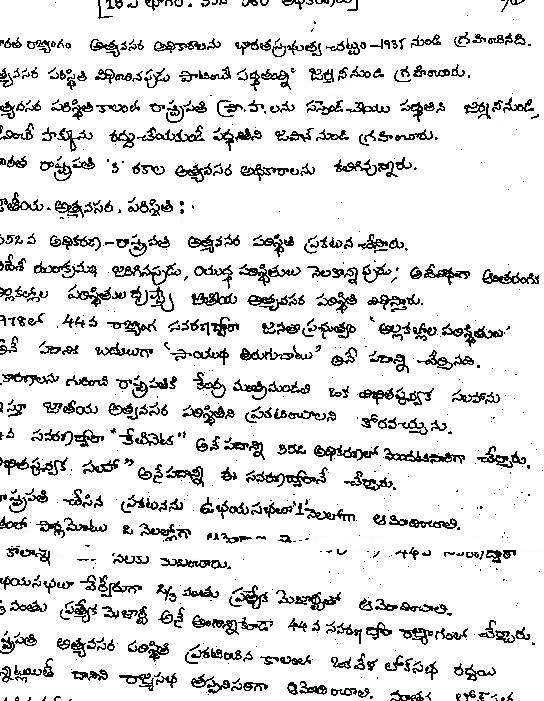 [18వ భాగం. 352 - 360 అధికరణలు]
రత రాజ్యాంగం అత్యవసర అధికారాలను భారతప్రభుత్వ చట్టం - 1935 నుండి గ్రహించినది.
త్యవసర పరిస్థితి విధించినపుడు పాటించే పద్ధతున్ని జర్మనీ నుండి గ్రహించారు.
త్యవసర పరిస్థితి కాలంలో రాష్ట్రపతి ప్రా.హ.లను సస్పెండ్ చేయు పద్ధతిని జర్మనీనుండి,
హక్కును రద్దు చేయకుండే పద్ధతిని జపాన్ నుండి గ్రహించారు.
రత రాష్ట్రపతి '3' రకాల అత్యవసర అధికారాలను కలిగివున్నారు.
జాతీయ అత్యవసర పరిస్థితి :
352వ అధికరణ - రాష్ట్రపతి అత్యవసర పరిస్థితి ప్రకటన చేస్తారు.
దేశీ దురాక్రమణ జరిగినప్పుడు, యుద్ధ పరిస్థితులు నెలకొన్నప్పుడు; అదేవిధంగా ఆంతరంగిక
పరిస్థితుల దృష్ట్యా జాతీయ అత్యవసర పరిస్థితి విధిస్తారు.
1978లో 44వ రాజ్యాంగ సవరణద్వారా జనతాప్రభుత్వం "అల్లకల్లోల పరిస్థితులు"
అనే పదానికి బదులుగా "సాయుధ తిరుగుబాటు" అనే పదాన్ని చేర్చినది.
కారణాలను గురించి రాష్ట్రపతికి కేంద్ర మంత్రిమండలి ఒక లిఖితపూర్వక సలహాను
ఇస్తూ జాతీయ అత్యవసర పరిస్థితిని ప్రకటించాలని కోరవచ్చును.
వ సవరణద్వారా "కేబినెట్" అనే పదాన్ని 352వ అధికరణలో మొదటిసారిగా చేర్చారు.
లిఖితపూర్వక సలహా" అనే పదాన్ని ఈ సవరణద్వారానే చేర్చారు.
రాష్ట్రపతి చేసిన ప్రకటనను ఉభయసభలూ 1 నెలలోగా ఆమోదించాలి.
2 నెలల్లోగా 44వ సవరణద్వారా
కాలాన్ని నెలకు
భయసభలూ వేర్వేరుగా 2/3 వంతు ప్రత్యేక మెజార్టీతో ఆమోదించాలి.
వంతు ప్రత్యేక మెజార్టీ అనే అంశాన్నికూడా 44వ సవరణద్వారా రాజ్యాంగంలో చేర్చారు.
ష్ట్రపతి అత్యవసర పరిస్థితి ప్రకటించిన కాలంలో ఒకవేళ లోక్‌సభ రద్దయి
న్నట్లయితే దానిని రాజ్యసభ తప్పనిసరిగా ఆమోదించాలి. నూతన లోక్‌సభ